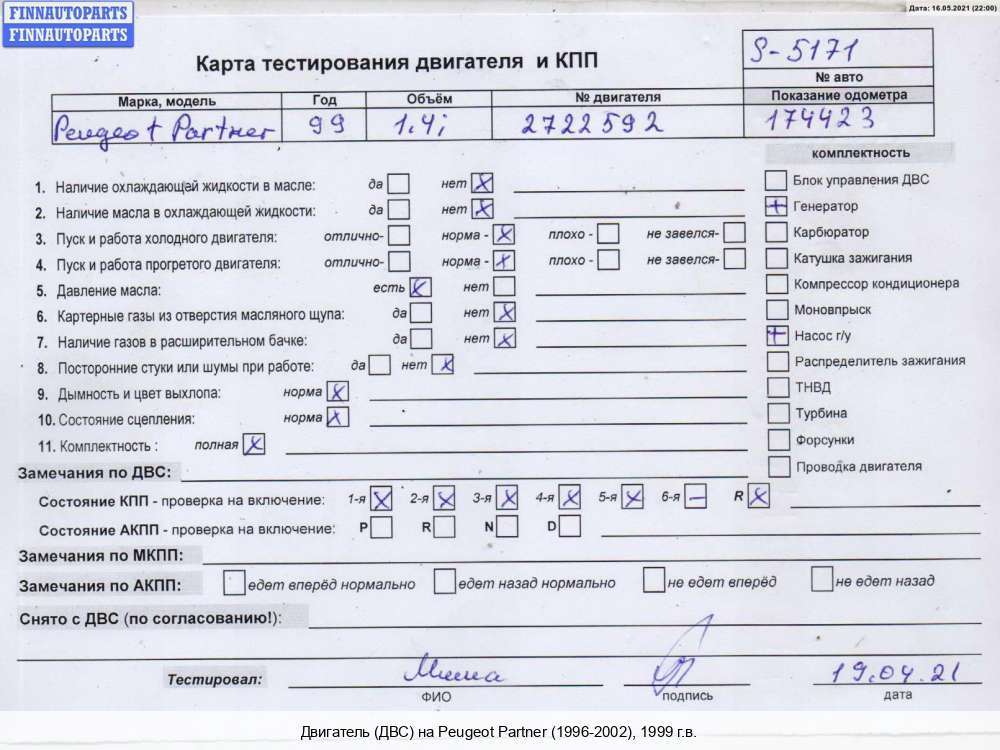 FINNAUTOPARTS
FINNAUTOPARTS
Дата: 16.05.2021 (22:00)
Карта тестирования двигателя и КПП
S-5171
№ авто
Марка, модель Год Объём № двигателя Показание одометра
Peugeot Partner 99 1.4i 2722592 174423
комплектность
1. Наличие охлаждающей жидкости в масле: да нет X
Блок управления ДВС
2. Наличие масла в охлаждающей жидкости: да нет X
+ Генератор
3. Пуск и работа холодного двигателя: отлично- норма - X плохо - не завелся-
Карбюратор
4. Пуск и работа прогретого двигателя: отлично- норма - X плохо - не завелся-
Катушка зажигания
5. Давление масла: есть X нет
Компрессор кондиционера
6. Картерные газы из отверстия масляного щупа: да нет X
Моновпрыск
7. Наличие газов в расширительном бачке: да нет X
+ Насос г/у
8. Посторонние стуки или шумы при работе: да нет X
Распределитель зажигания
9. Дымность и цвет выхлопа: норма X
ТНВД
10. Состояние сцепления: норма X
Турбина
11. Комплектность : полная X
Форсунки
Замечания по ДВС:
Проводка двигателя
Состояние КПП - проверка на включение: 1-я X 2-я X 3-я X 4-я X 5-я X 6-я – R X
Состояние АКПП - проверка на включение: P R N D
Замечания по МКПП:
Замечания по АКПП: едет вперёд нормально едет назад нормально не едет вперёд не едет назад
Снято с ДВС (по согласованию!):
Тестировал: Миша 19.04.21
ФИО подпись дата
Двигатель (ДВС) на Peugeot Partner (1996-2002), 1999 г.в.